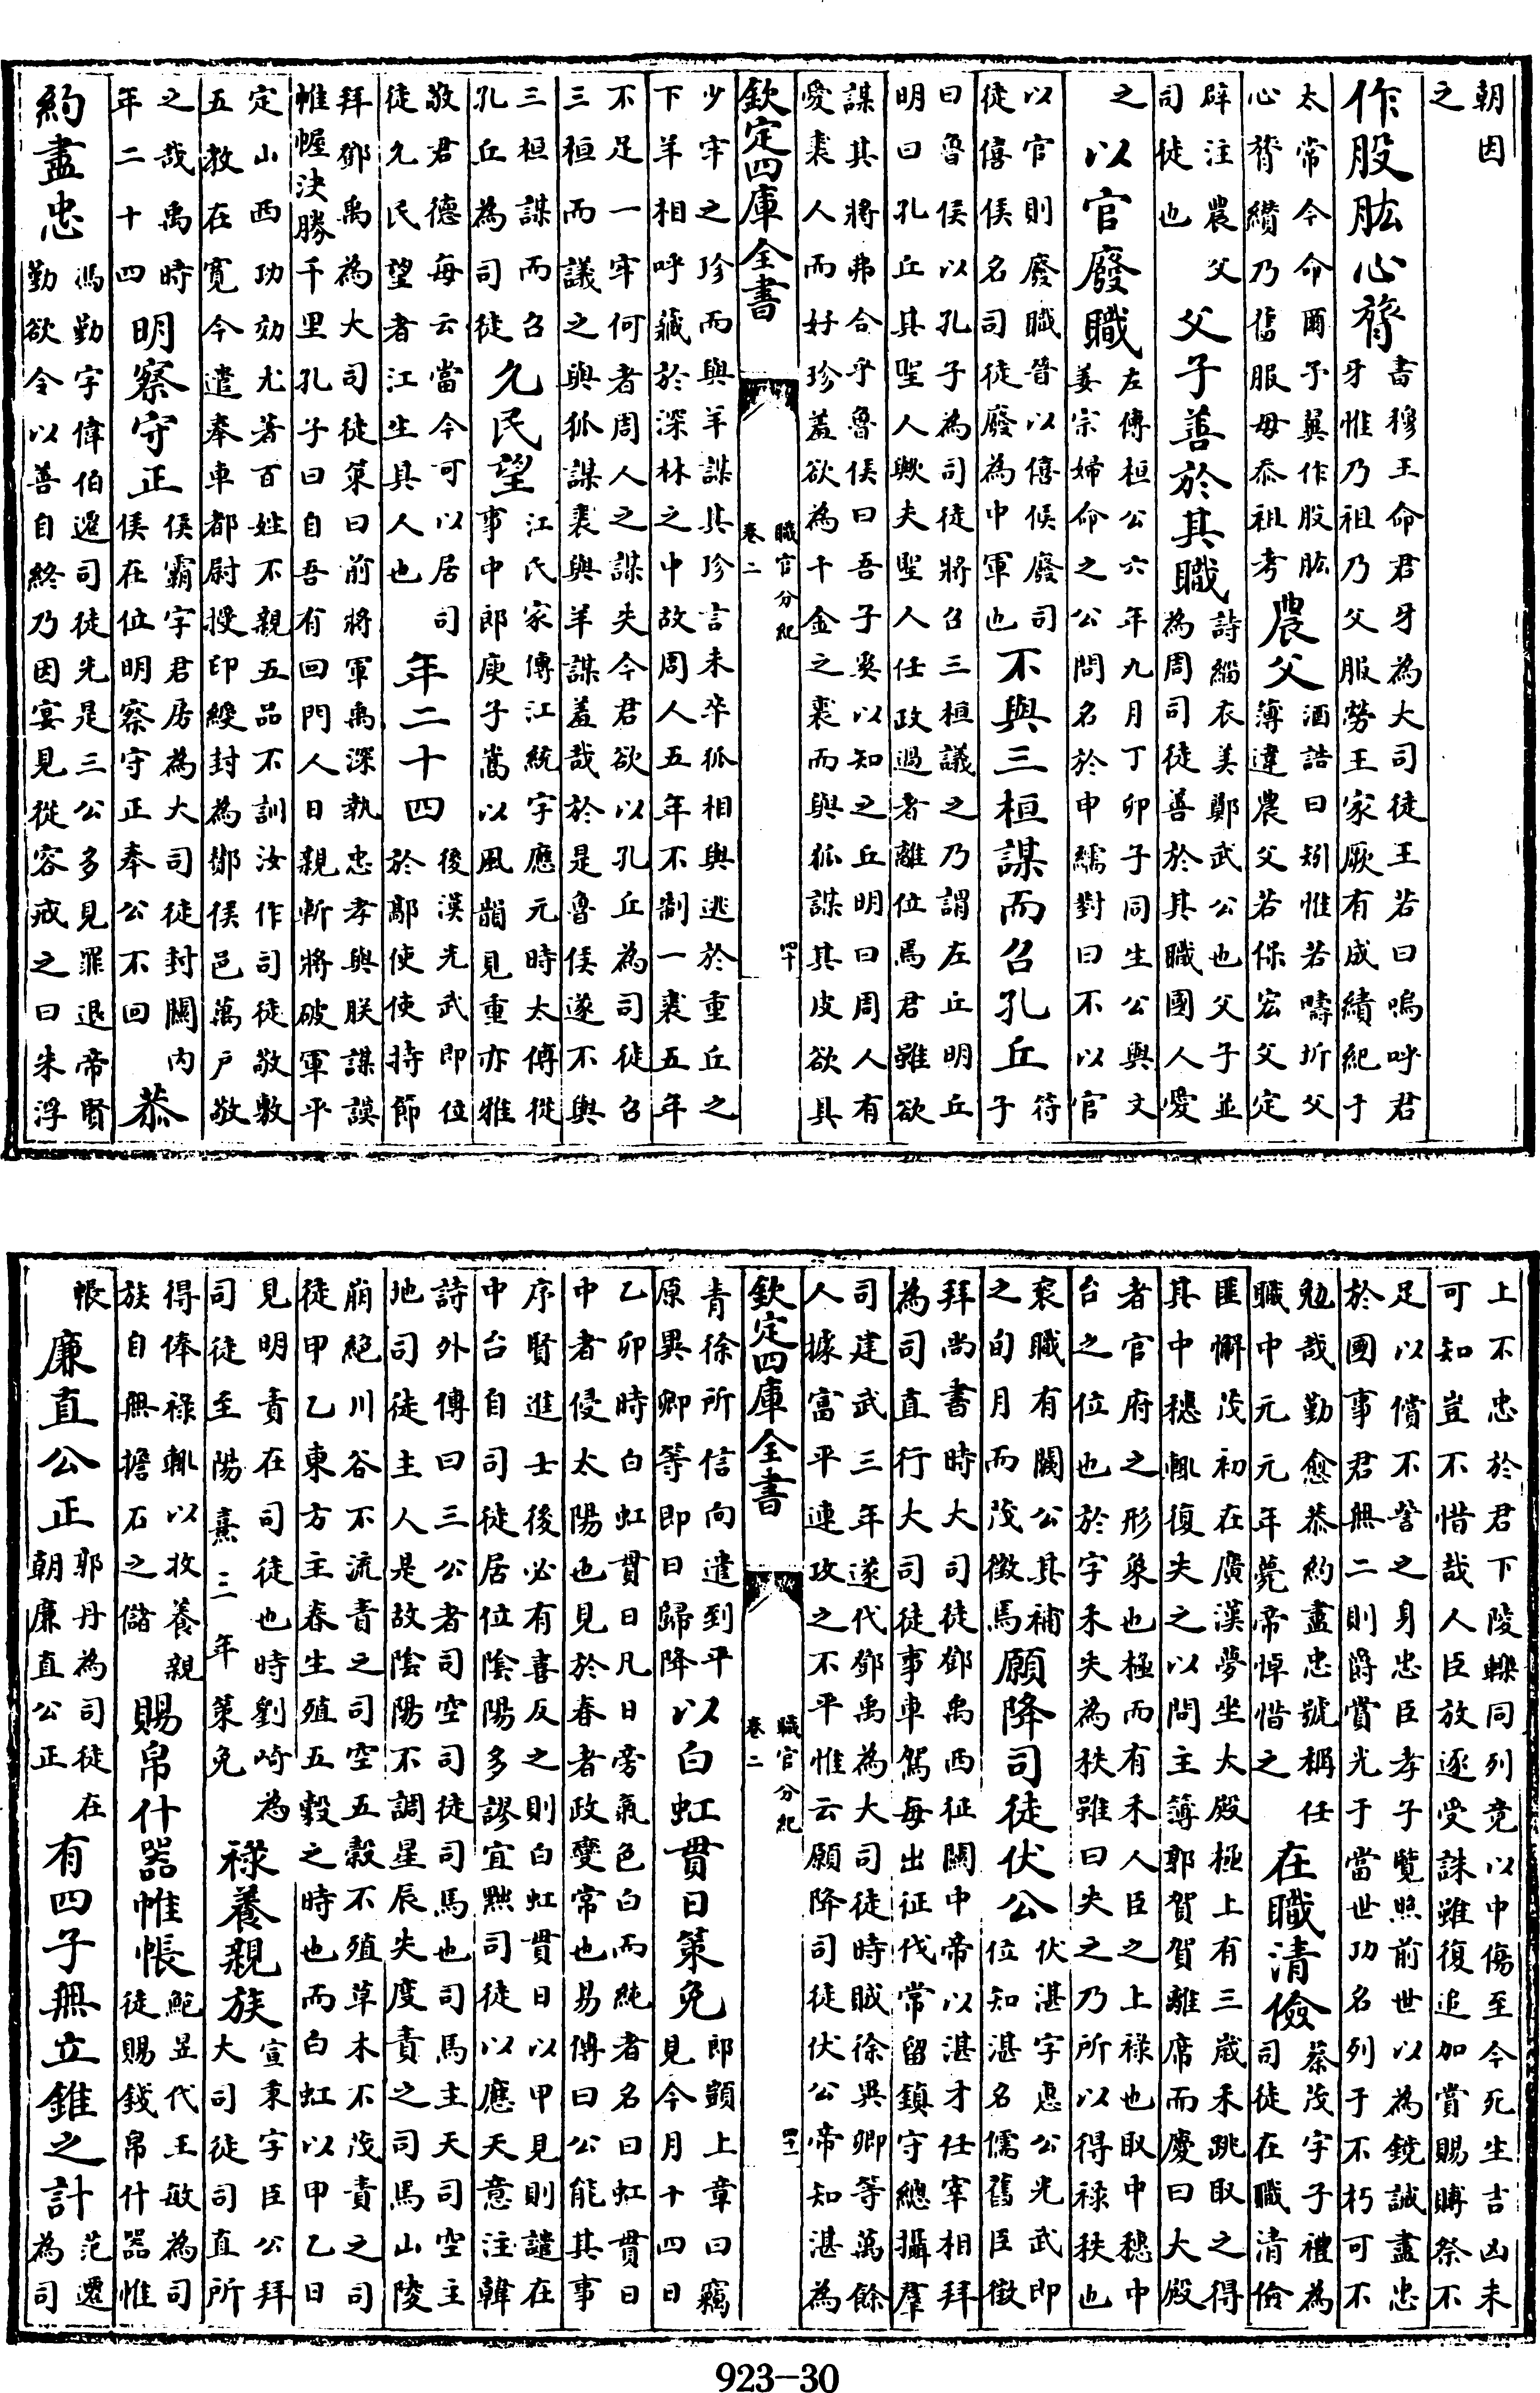 朝因之
作股肱心膂書穆王命君牙為大司徒王若曰嗚呼君牙惟乃祖乃父服勞王家厥有成績紀于
太常今命爾予翼作股肱心膂纘乃舊服毋忝祖考農父酒誥曰矧惟若疇圻父薄違農父若保宏父定
辟注農父司徒也父子善於其職詩緇衣美鄭武公也父子並為周司徒善於其職國人愛
之以官廢職左傳桓公六年九月丁卯子同生公與文姜宗婦命之公問名於申繻對曰不以官
以官則廢職晉以僖侯廢司徒僖侯名司徒廢為中軍也不與三桓謀而召孔丘符子
曰魯侯以孔子為司徒將召三桓議之乃謂左丘明丘明曰孔丘其聖人歟夫聖人任政過者離位焉君雖欲
謀其將弗合乎魯侯曰吾子奚以知之丘明曰周人有愛裘人而好珍羞欲為千金之裘而與狐謀其皮欲具
欽定四庫全書 職官分紀卷二 四十
少牢之珍而與羊謀其珍言未卒狐相與逃於重丘之下羊相呼藏於深林之中故周人五年不制一裘五年
不足一牢何者周人之謀失今君欲以孔丘為司徒召三桓而議之與狐謀裘與羊謀羞哉於是魯侯遂不與
三桓謀而召孔丘為司徒允民望江氏家傳江統字應元時太傅從事中郎庾子嵩以風韻見重亦雅
敬君德每云當今可以居司徒允民望者江生其人也年二十四後漢光武即位於鄗使使持節
拜鄧禹為大司徒策曰前將軍禹深執忠孝與朕謀謨帷幄決勝千里孔子曰自吾有回門人日親斬將破軍平
定山西功効尤著百姓不親五品不訓汝作司徒敬敷五教在寬今遣奉車都尉授印綬封為酇侯邑萬戶敬
之哉禹時年二十四明察守正侯霸字君房為大司徒封關內侯在位明察守正奉公不回恭
約盡忠馮勤字偉伯遷司徒先是三公多見罪退帝賢勤欲令以善自終乃因宴見從容戒之曰朱浮
上不忠於君下陵轢同列竟以中傷至今死生吉凶未可知豈不惜哉人臣放逐受誅雖復追加賞賜賻祭不
足以償不訾之身忠臣孝子覽照前世以為鏡誡盡忠於國事君無二則爵賞光于當世功名列于不朽可不
勉哉勤愈恭約盡忠號稱任職中元元年薨帝悼惜之在職清儉蔡茂字子禮為司徒在職清儉
匪懈茂初在廣漢夢坐太殿極上有三歲禾跳取之得其中穗輒復失之以問主簿郭賀賀離席而慶曰大殿
者官府之形象也極而有禾人臣之上祿也取中穗中台之位也於字禾失為秩雖曰失之乃所以得祿秩也
袞職有闕公其補之旬月而茂徵焉願降司徒伏公伏湛字惠公光武即位知湛名儒舊臣徵
拜尚書時大司徒鄧禹西征關中帝以湛才任宰相拜為司直行大司徒事車駕每出征伐常留鎮守總攝羣
司建武三年遂代鄧禹為大司徒時賊徐異卿等萬餘人據富平連攻之不平惟云願降司徒伏公帝知湛為
欽定四庫全書 職官分紀卷二 四十一
青徐所信向遣到平原異卿等即日歸降以白虹貫日策免郎顗上章曰竊見今月十四日
乙卯時白虹貫日凡日旁氣色白而純者名曰虹貫日中者侵太陽也見於春者政變常也易傳曰公能其事
序賢進士後必有喜反之則白虹貫日以甲見則譴在中台自司徒居位陰陽多謬宜黜司徒以應天意注韓
詩外傳曰三公者司空司徒司馬也司馬主天司空主地司徒主人是故陰陽不調星辰失度責之司馬山陵
崩絕川谷不流責之司空五穀不殖草木不茂責之司徒甲乙東方主春生殖五穀之時也而白虹以甲乙日
見明責在司徒也時劉崎為司徒至陽嘉三年策免祿養親族宣秉字臣公拜大司徒司直所
得俸祿輒以收養親族自無擔石之儲賜帛什器帷帳鮑昱代王敏為司徒賜錢帛什器惟
帳廉直公正郭丹為司徒在朝廉直公正有四子無立錐之計范遷為司
923-30